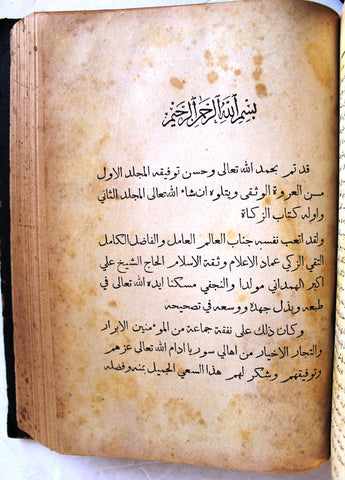 بسم الله الرحمن الرحيم
قد تم بحمد الله تعالى وحسن توفيقه المجلد الاول
من العروة الوثقى ويتلوه ان شاء الله تعالى المجلد الثاني
واوله كتاب الزكاة
ولقد اتعب نفسه جناب العالم العامل والفاضل الكامل
التقي الزكي عماد الاعلام وثقة الاسلام الحاج الشيخ علي
اكبر الهمداني مولدا والنجفي مسكنا ايده الله تعالى في
طبعه وبذل جهده ووسعه في تصحيحه
وكان ذلك على نفقة جماعة من المؤمنين الابرار
والتجار الاخيار من اهالي سوريا ادام الله تعالى عزهم
وتوفيقهم وشكر لهم هذا السعي الجميل بمنه وفضله